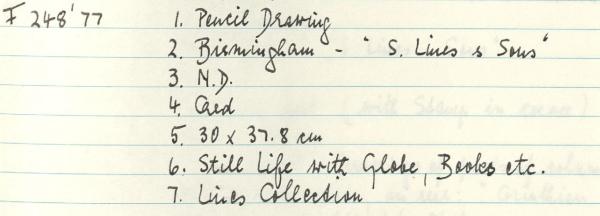 F 248'77 1. Pencil Drawing
2. Birmingham - "S. Lines & Sons"
3. N.D.
4. Card
5. 30 x 37.8 cm
6. Still Life with Globe, Books etc.
7. Lines Collection